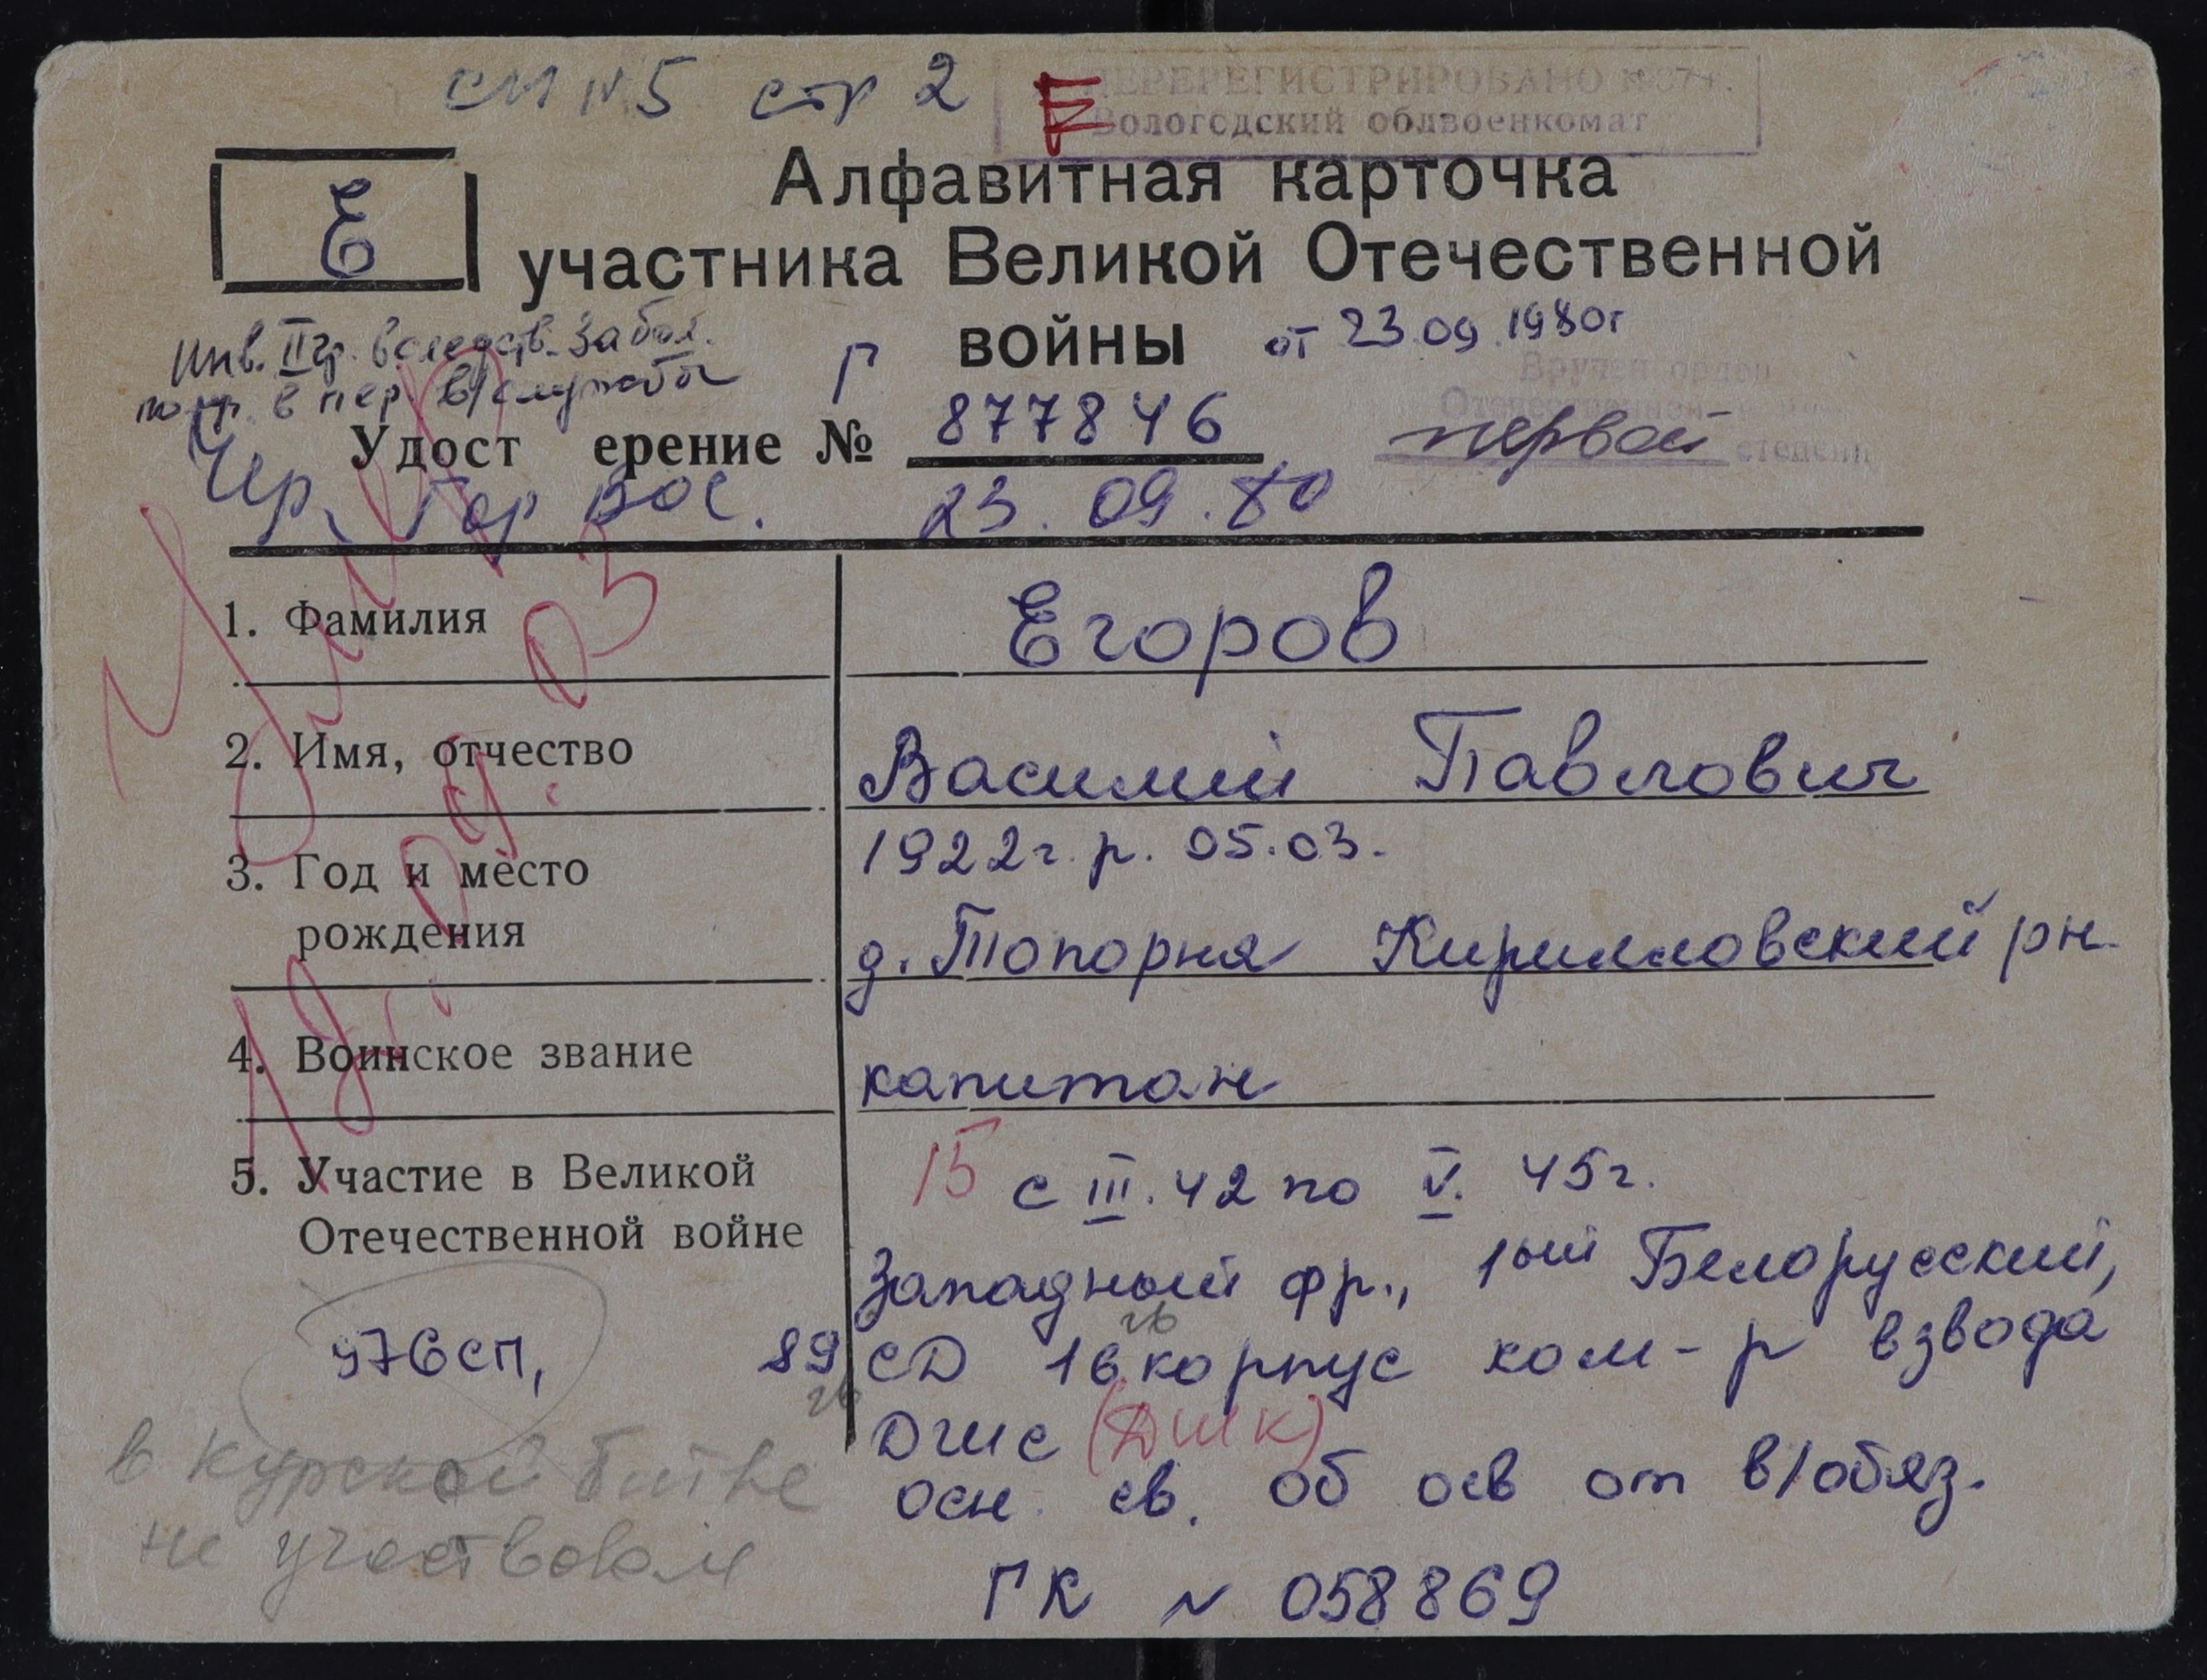 см N5 стр 2
ПЕРЕРЕГИСТРИРОВАНО
Вологодский облвоенкомат
Е
Алфавитная карточка
участника Великой Отечественной
войны от 23.09.1980г
Инв. II гр. вследств. забол.
получ. в пер. в/службы
Г
Вручен орден
Отечественной войны
первой степени
Удост ерение № 877846
Чер. Гор ВОС. 23.09.80
Умер
19.09.03
1. Фамилия Егоров
2. Имя, отчество Василий Павлович
3. Год и место рождения 1922г.р. 05.03.
д. Топорня Кирилловский рн.
4. Воинское звание капитан
5. Участие в Великой Отечественной войне 15 с III.42 по V.45г.
Западный фр., 1ый Белорусский,
976сп, 89 СД 16 корпус ком-р взвода
гв гв
ДШС (ДШК)
осн. св. об осв от в/обяз.
в курской битве
не участвовал
ГК N 058869